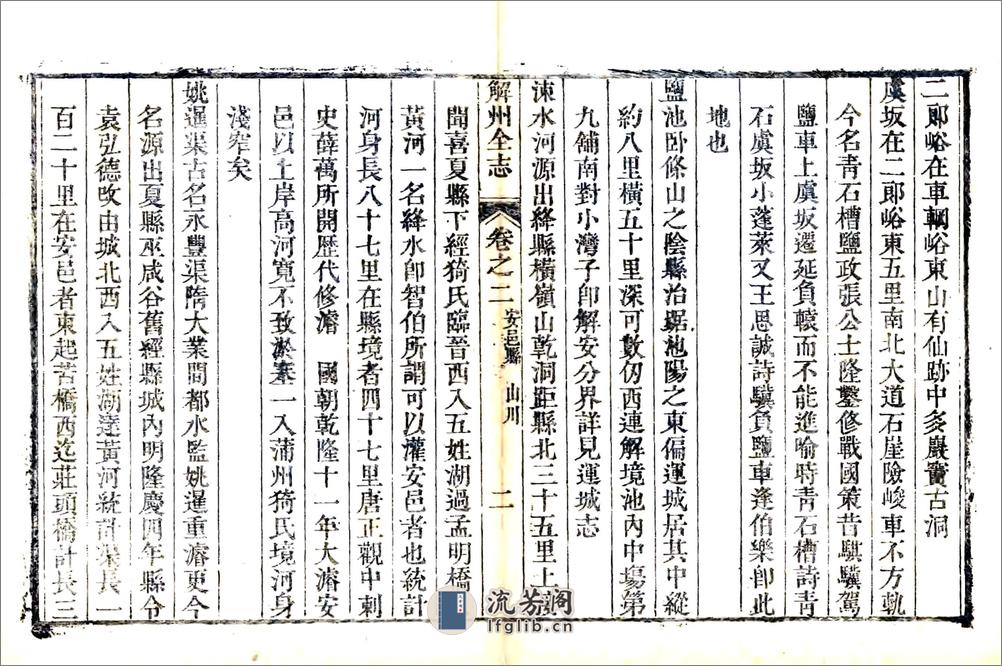 二郎峪在車輞峪東山有仙跡中多巖竇古洞
虞坂在二郎峪東五里南北大道石崖險峻車不方軌
今名青石槽鹽政張公士隆鑿修戰國策昔騏驥駕
鹽車上虞坂遷延負轅而不能進喻時青石槽詩青
石虞坂小蓬萊又王思誠詩驥負鹽車逢伯樂卽此
地也
鹽池卧條山之陰縣治踞池陽之東偏運城居其中縱
約八里橫五十里深可數仞西連解境池內中場第
九鋪南對小灣子卽解安分界詳見運城志
涑水河源出絳縣橫嶺山乾洞距縣北三十五里上
解州全志
卷之二
安邑縣 山川
二
聞喜夏縣下經猗氏臨晉西入五姓湖過孟明橋
黃河一名絳水卽智伯所謂可以灌安邑者也統計
河身長八十七里在縣境者四十七里唐正觀中刺
史薛萬所開歷代修濬 國朝乾隆十一年大濬安
邑以上岸高河寬不致淤塞一入蒲州猗氏境河身
淺窄矣
姚暹渠古名永豐渠隋大業間都水監姚暹重濬更今
名源出夏縣巫咸谷舊經縣城內明隆慶四年縣令
袁弘德改由城北西入五姓湖達黃河統計渠長一
百二十里在安邑者東起苦橋西迄莊頭橋計長三
流芳閣
lfglib.cn